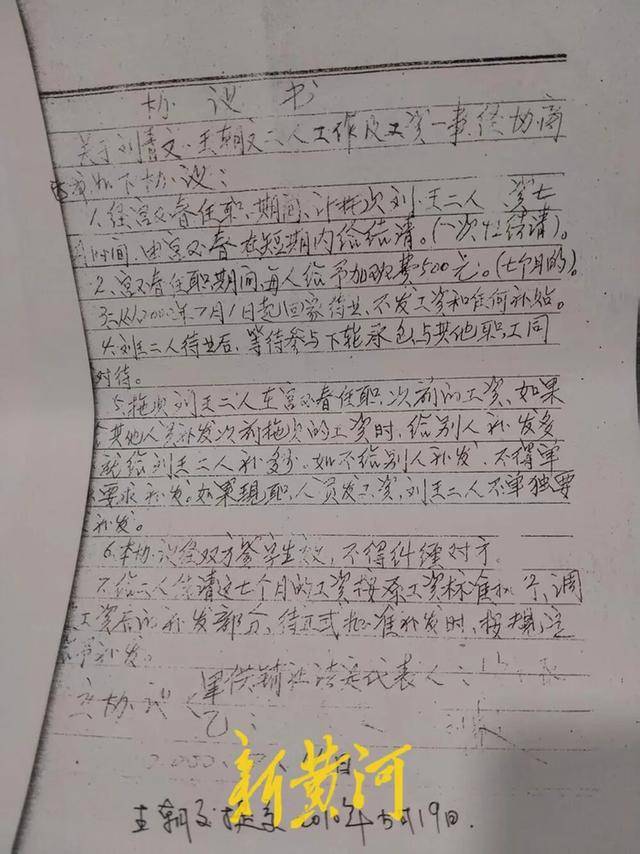 协议书
关于刘青文、王朝文二人工作及工资一事经协商
如下协议：
1、经宫又春任职期间，计拖欠刘、王二人 资七
时间，由宫又春在短期内给结清。(一次性结清)。
2、宫又春任职期间，每人给予加班费500元。(七个月的)。
3、从2000年7月1日起回家待业，不发工资和任何补贴。
4、刘王二人待业后，等待参与下轮承包与其他职工同
对待。
5、拖欠刘王二人在宫又春任职次前的工资，如果
其他人员补发次前拖欠的工资时，给别人补发多
就给刘王二人补多少。如不给别人补发，不得单
要求补发。如果现职人员发工资，刘王二人不单独要
补发。
6、本协议经双方签字生效，不得纠缠对方。
不给二人结清这七个月的工资按原工资标准 调
工资后的补发部分，待正式批准补发时，按规定
补发。
立协议
甲供销社法定代表人：
乙：
新黄河
王朝文 2010年5月19日.